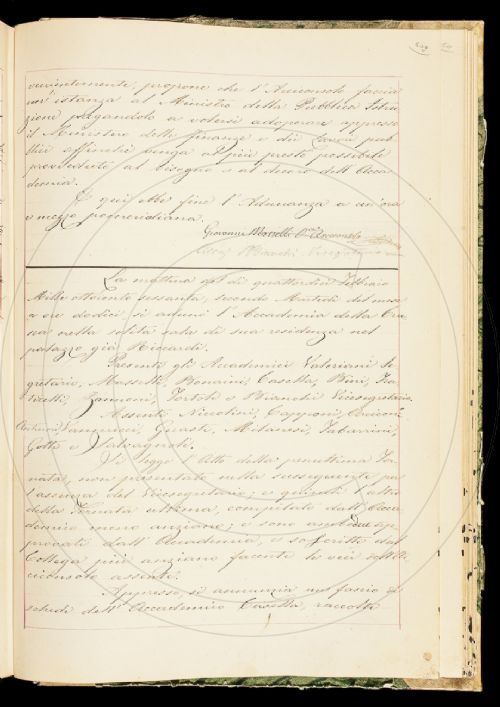 propone che l'Arciconsolo faccia
un'istanza al Ministro della Pubblica Istru
zione pregandolo a volersi adoperare appresso
il Ministero delle finanze e dei lavori pub
blici affinchè venga al più presto possibile
provveduto al bisogno e al decoro dell'Acca
demia.
E qui ebbe fine l'Adunanza a un'ora
e mezzo pomeridiana.
Giovanni
La mattina del dì quattordici Febbraio
Mille ottocento sessanta, secondo Martedì del mese
a ore dodici si adunò l'Accademia della Cru
sca nella solita sala di sua residenza nel
palazzo già Riccardi.
Presenti gli Accademici Valeriani Se
gretario, Masselli, Bonaini, Casella, Bini, Fra
ticelli, Zannoni, Tortoli e Bianchi Vicesegretario.
Assenti Niccolini, Capponi,
Vannucci, Guasti, Milanesi, Tabarrini,
Gotti e Salvagnoli.
Si legge l'Atto della penultima Tor
nata, non presentato nella susseguente per
l'assenza del Vicesegretario; e quindi l'altro
della Tornata ultima, compilato dall'Acca
demico meno anziano; e sono ambedue ap
provati dall'Accademia, e soscritti dal
Collega più anziano facente le veci dell'Ar
ciconsolo assente.
Appresso si annunzia un fascio di
schede dell'Accademico Casella, raccolte